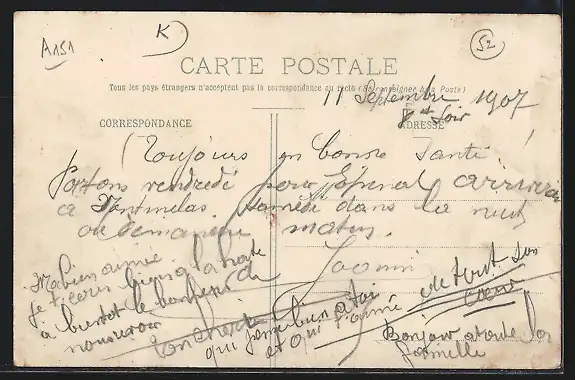 A151
K
52
CARTE POSTALE
Tous les pays étrangers n'acceptent pas la correspondance au recto (Se renseigner à la Poste)
11 Septembre 1907
soir
CORRESPONDANCE
ADRESSE
Toujours en bonne santé!
Partons vendredi pour Epinal arrivons
a samedi dans la nuit
ou dimanche matin.
Ma bien aimée
Je t'écris bien a la hate
à bientot le bonheur de
nous revoir
Ton
qui pense bien a toi
et qui t'aime
de tout son
coeur
Bonjour a toute la
famille